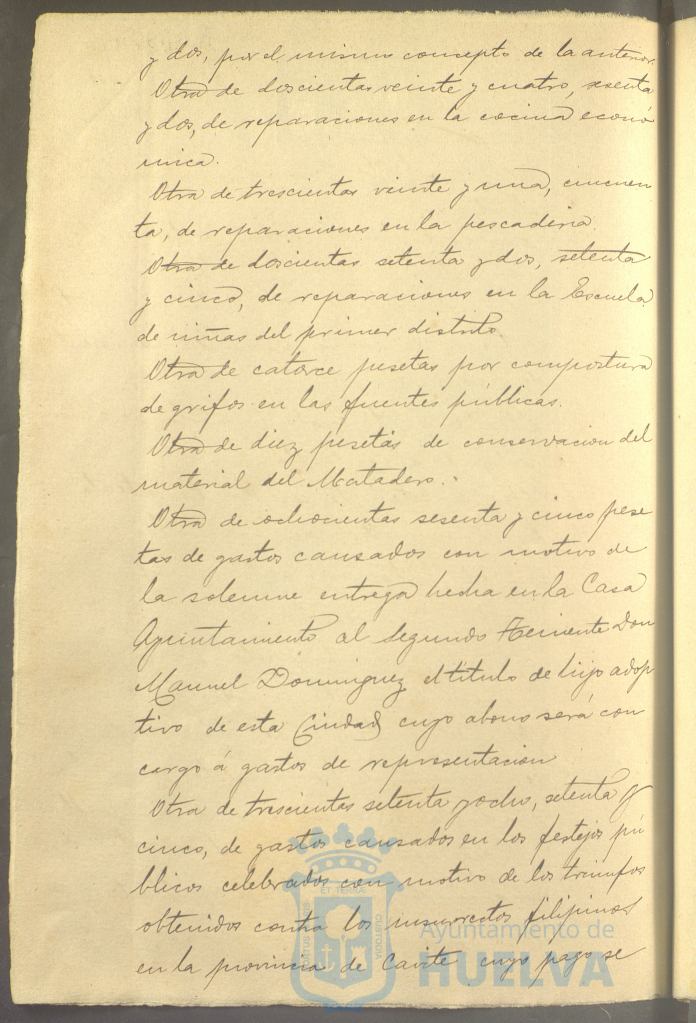 y dos, por el mismo concepto de la anterior.
Otra de doscientas veinte y cuatro, sesenta
y dos, de reparaciones en la cocina econó
mica.
Otra de trescientas veinte y una, cincuen
ta, de reparaciones en la pescaderia.
Otra de doscientas setenta y dos, setenta
y cinco, de reparaciones en la Escuela
de niñas del primer distrito.
Otra de catorce pesetas por compostura
de grifos en las fuentes públicas.
Otra de diez pesetas de conservacion del
material del Matadero.
Otra de ochocientas sesenta y cinco pese
tas de gastos causados con motivo de
la solemne entrega hecha en la Casa
Ayuntamiento al Segundo Teniente Don
Manuel Dominguez el titulo de hijo adop
tivo de esta Ciudad cuyo abono será con
cargo á gastos de representacion
Otra de trescientas setenta y ocho, setenta y
cinco, de gastos causados en los festejos pú
blicos celebrados con motivo de los triunfos
obtenidos contra los insurrectos filipinos
en la provincia de Cavite cuyo pago se
ET TERRAE
CUSTODIA
PORTUS MARIS
Ayuntamiento de
HUELVA